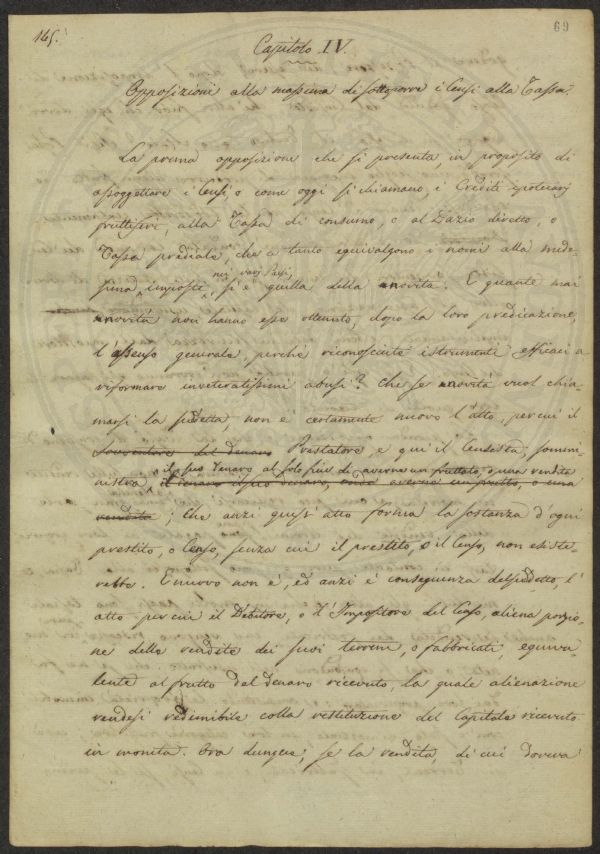 145.
69
Capitolo IV.
Opposizioni alla massima di sottoporre i Censi alla Tassa.
La prima opposizione che si presenta, in proposito di
assoggettare i Censi, o come oggi si chiamano, i Crediti ipotecarj
fruttiferi, alla Tassa di consumo, o al Dazio diretto, o
Tassa prediale, che a tanto equivalgono i nomi alla mede-
nei varj Paesi,
sima imposti, si è quella della novità. E quante mai
novità non hanno esse ottenuto, dopo la loro predicazione,
l'assenso generale, perchè riconosciute istrumenti efficaci a
riformare inveteratissimi abusi? Che se novità vuol chia-
marsi la sudetta, non è certamente nuovo l'atto, per cui il
Sovventore del denaro Prestatore, e qui il Censista, sommi-
il suo denaro al solo fine di averne un fruttato, o una rendita
nistra, il denaro suo denaro, onde averne un frutto, o una
rendita; Che anzi quest'atto forma la sostanza d'ogni
prestito, o Censo, senza cui il prestito, o il Censo, non esiste-
rebbe. E nuovo non è, ed anzi è conseguenza del sudetto, l'
atto per cui il Debitore, o l'Impositore del Censo, aliena porzio-
ne della rendita dei suoi terreni, o fabbricati, equiva-
lente al frutto del denaro ricevuto, la quale alienazione
rendesi redimibile colla restituzione del Capitale ricevuto
in moneta. Ora dunque, se la rendita, di cui doveva